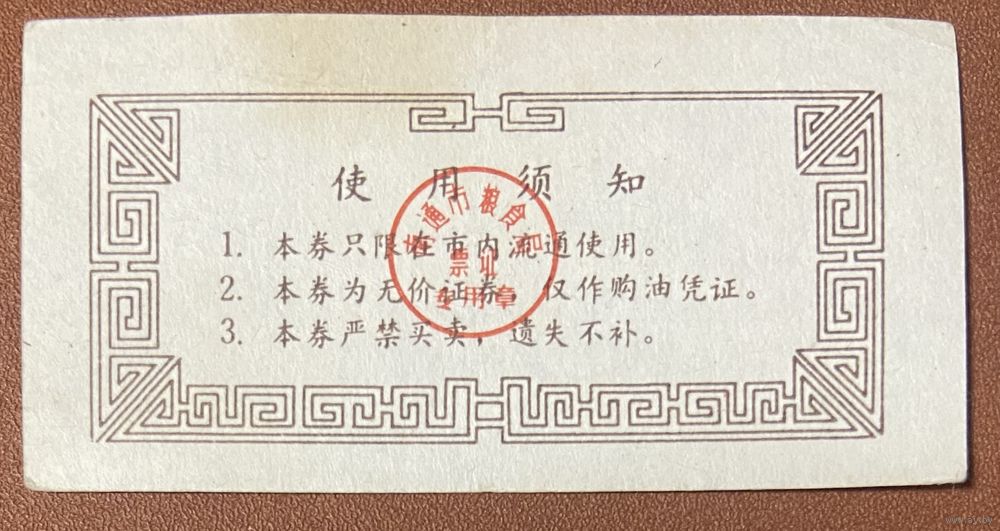 使用须知
1. 本券只限在市内流通使用。
2. 本券为无价证券，仅作购油凭证。
3. 本券严禁买卖，遗失不补。
南通市粮食局
票证
专用章